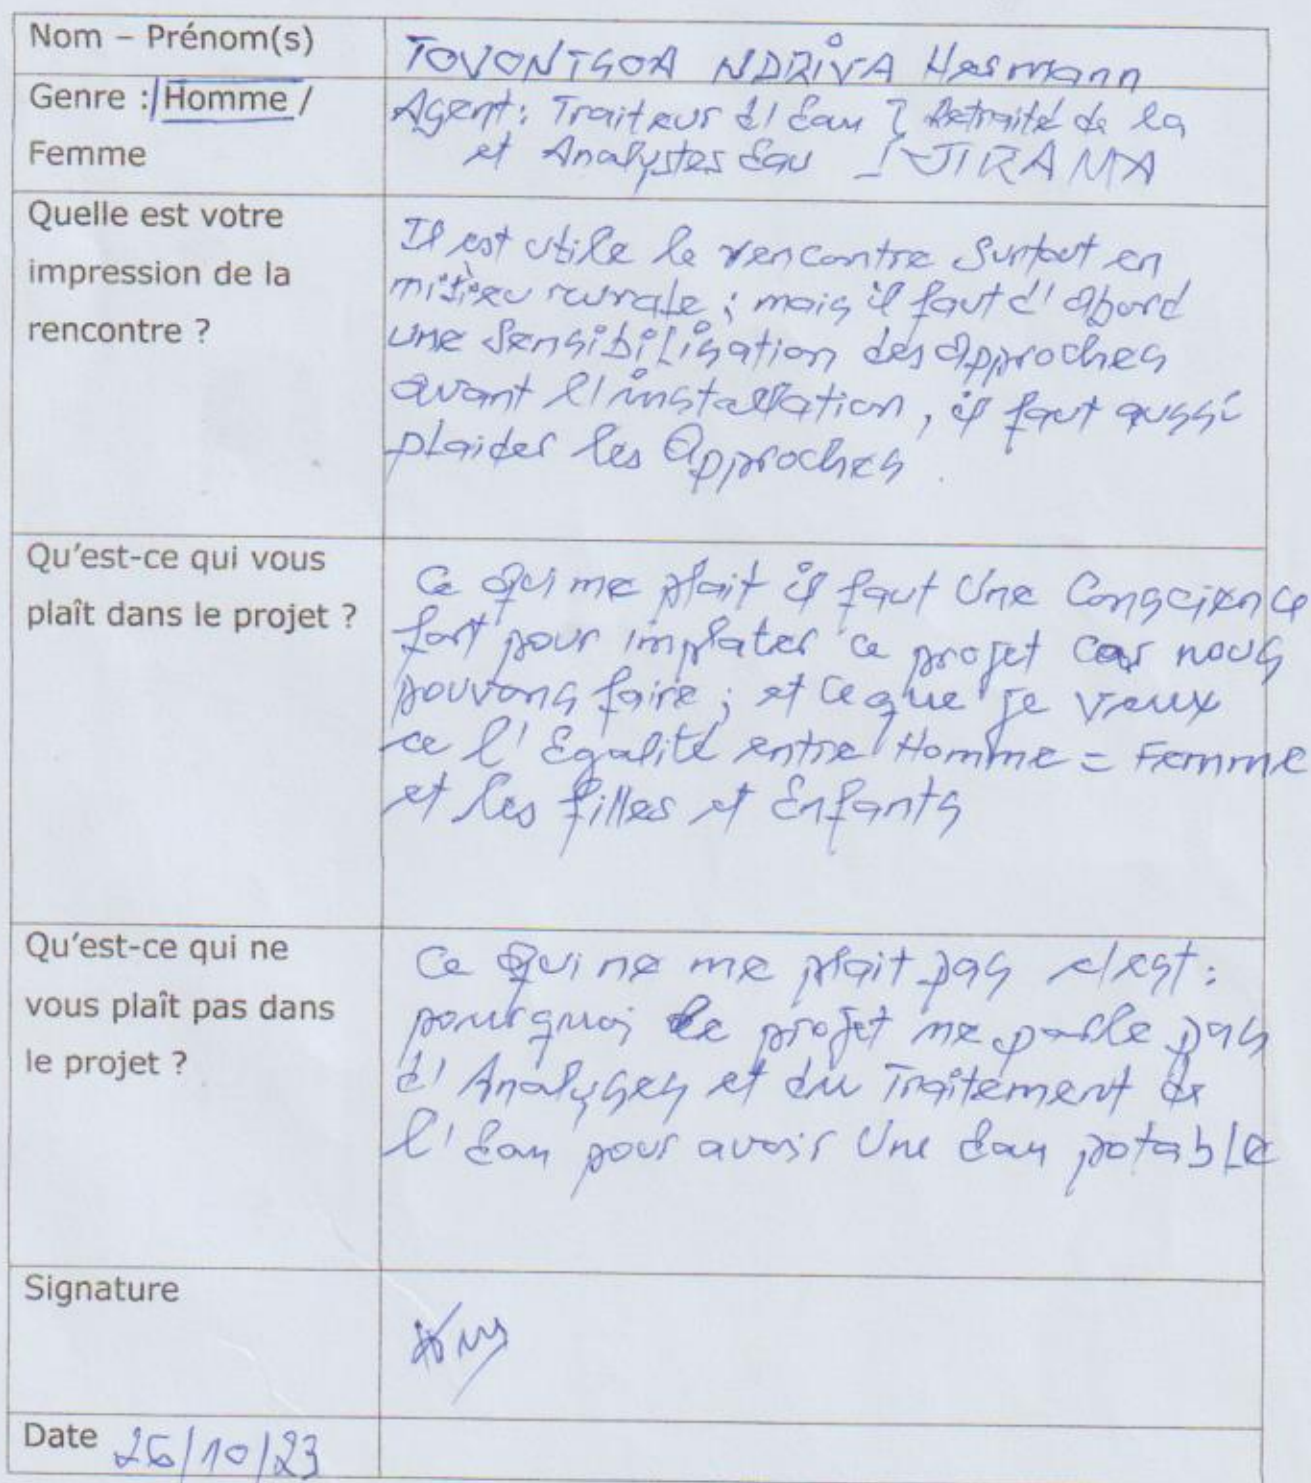 Nom – Prénom(s)
TOVONTSOA NDRIVA Hermann
Genre : Homme /
Femme
Agent: Traiteur d'Eau Retraité de la
et Analystes Eau JIRAMA
Quelle est votre
impression de la
rencontre ?
Il est utile le rencontre Surtout en
milieu rurale ; mais il faut d'abord
une Sensibilisation des Approches
avant l'installation, il faut aussi
plaider les Approches.
Qu'est-ce qui vous
plaît dans le projet ?
Ce qui me plait il faut Une Conscience
fort pour implater ce projet car nous
pouvons faire ; et ce que je veux
ce l'Egalité entre Homme = Femme
et les filles et Enfants
Qu'est-ce qui ne
vous plaît pas dans
le projet ?
Ce qui ne me plait pas c'est :
pourquoi le projet ne parle pas
d'Analyses et du Traitement de
l'Eau pour avoir Une Eau potable
Signature
Date 26/10/23